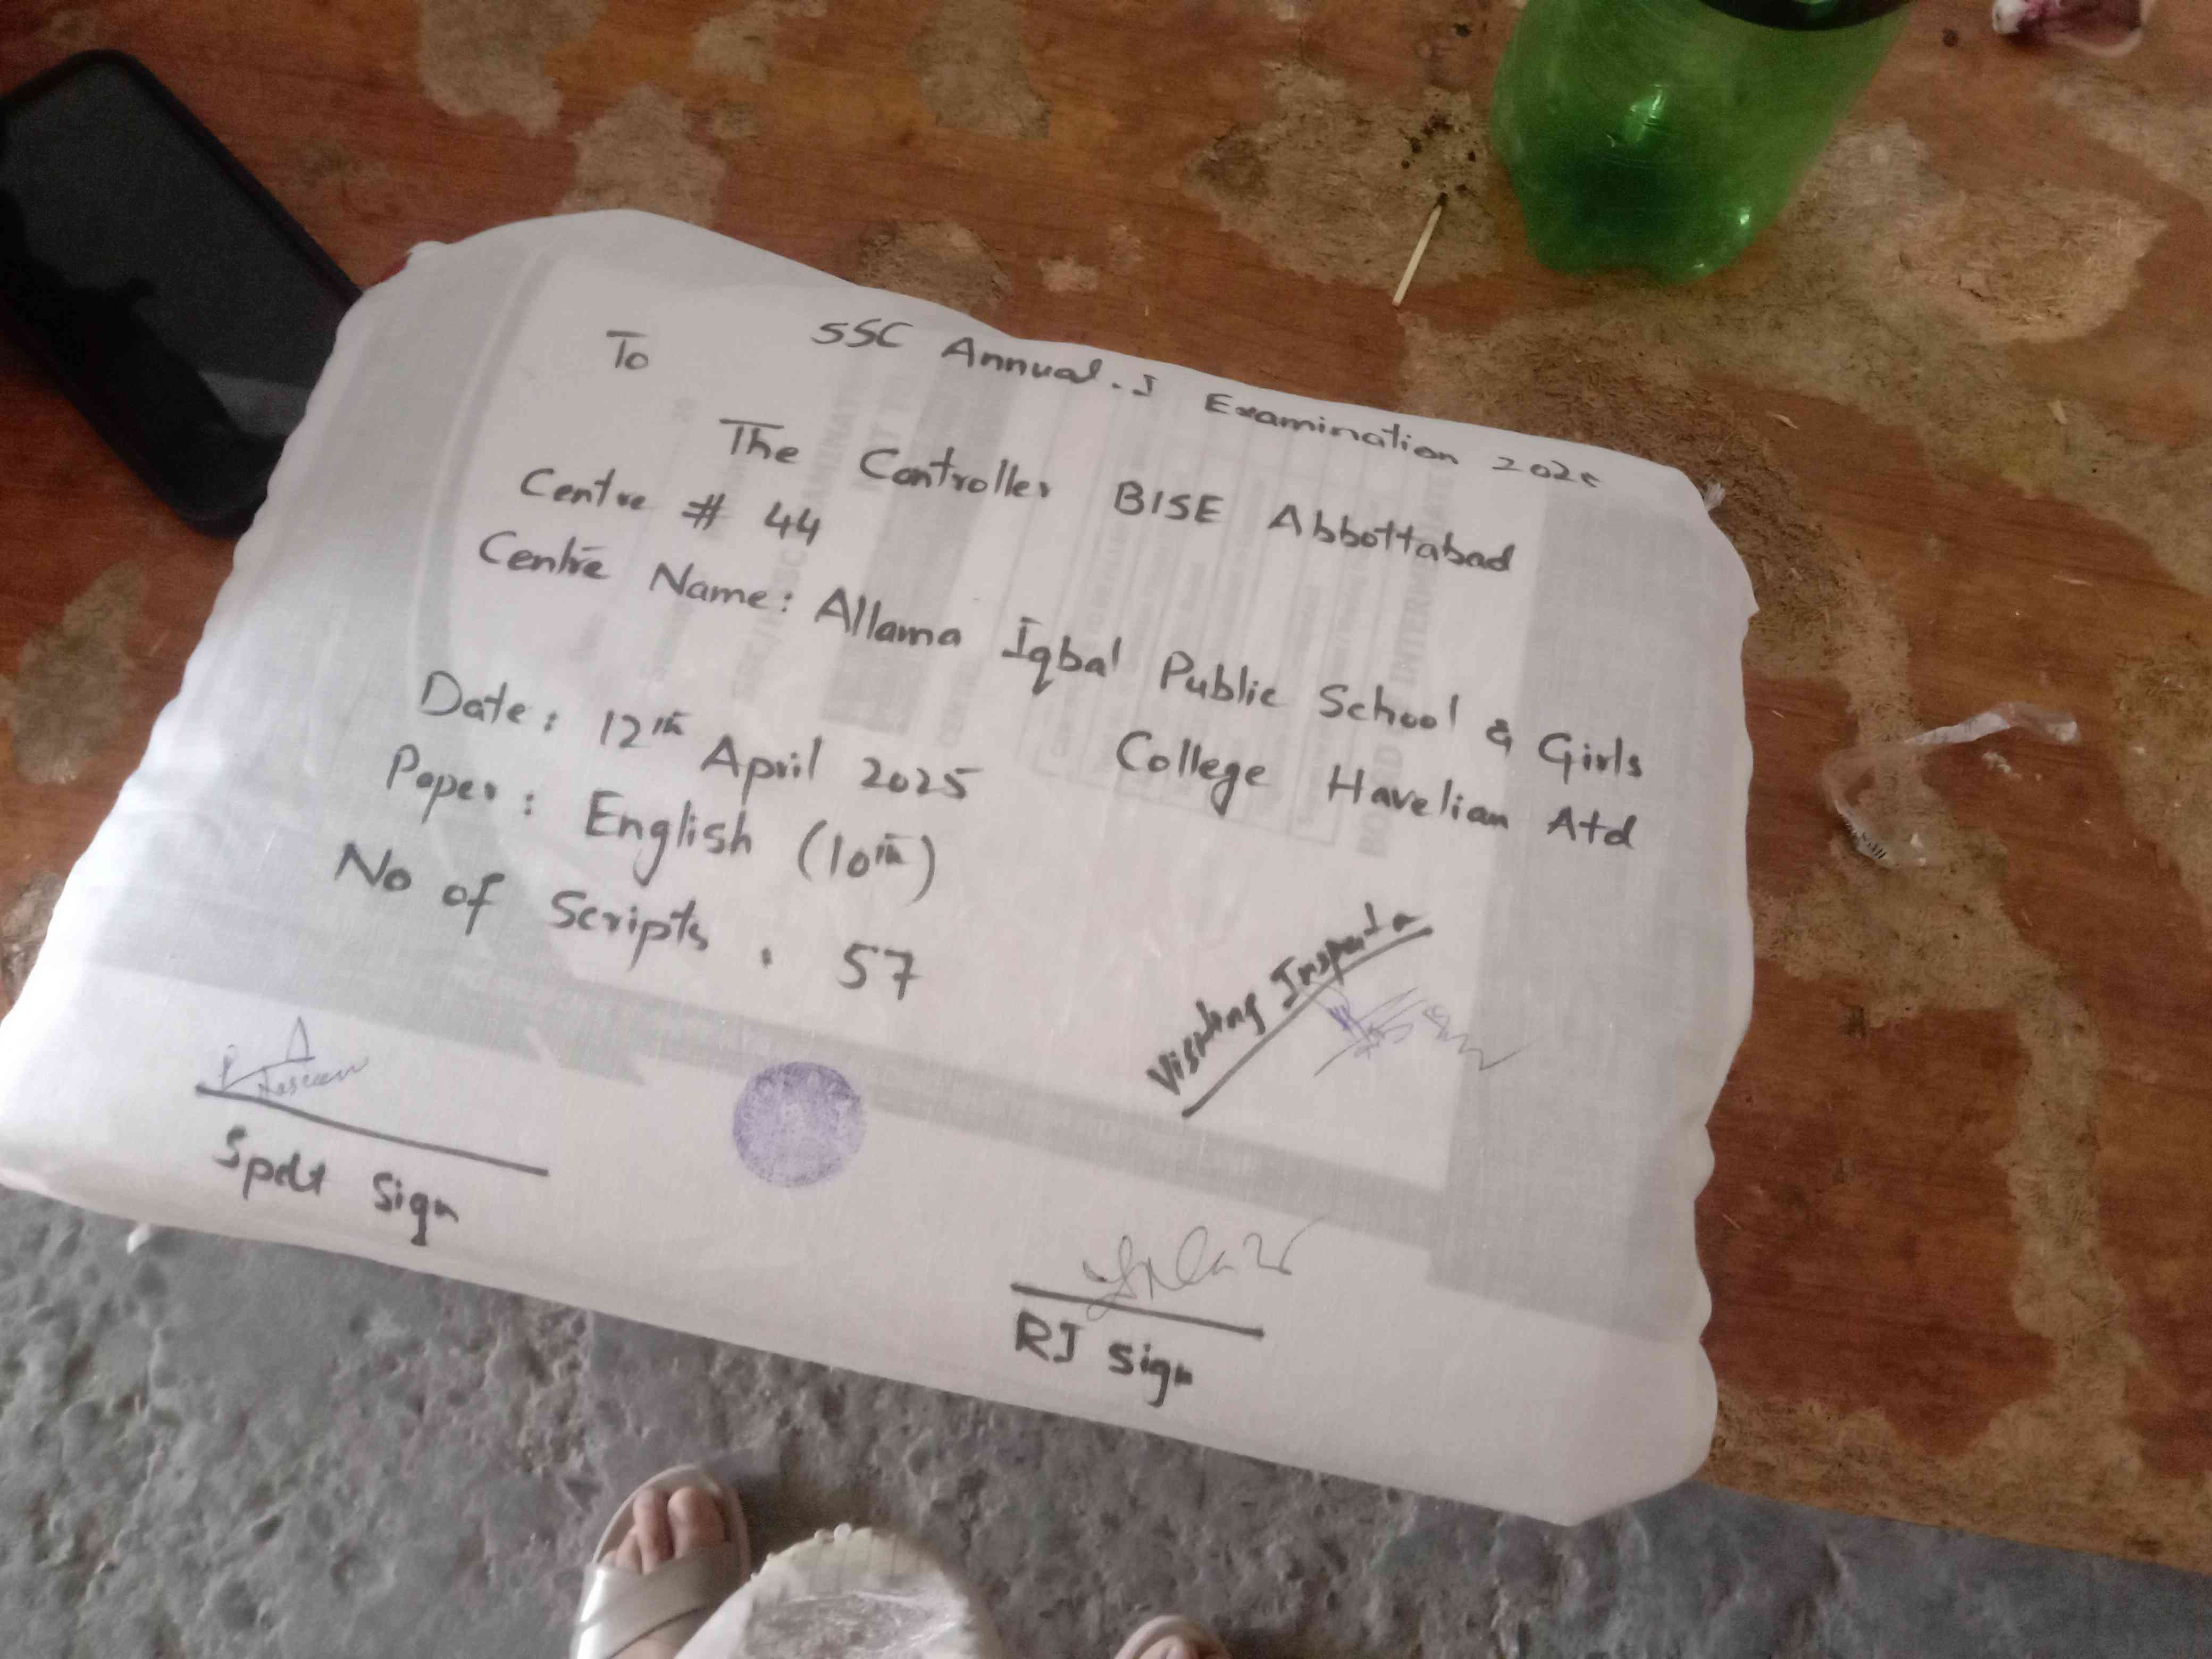 SSC Annual-I Examination 2025
To
The Controller BISE Abbottabad
Centre # 44
Centre Name: Allama Iqbal Public School & Girls
College Havelian Atd
Date: 12th April 2025
Paper: English (10th)
No of Scripts. 57
Visiting Inspector
Spdt Sign
RI Sign